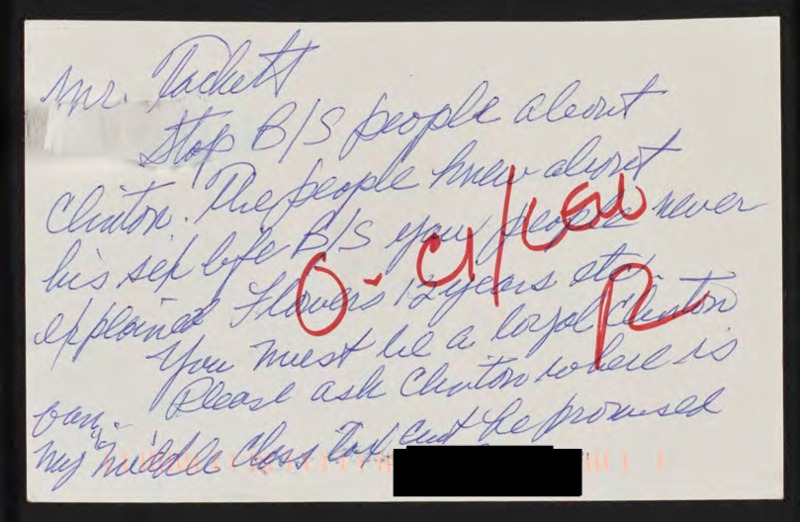 Mr. Tackett
Stop B/S people about
Clinton. The people knew about
his sex life B/S you people never
explained Flowers 12 years etc.
You must be a loyal Clinton
fan.
Please ask Clinton where is
my middle class tax cut he promised
O-CI/LEW
R